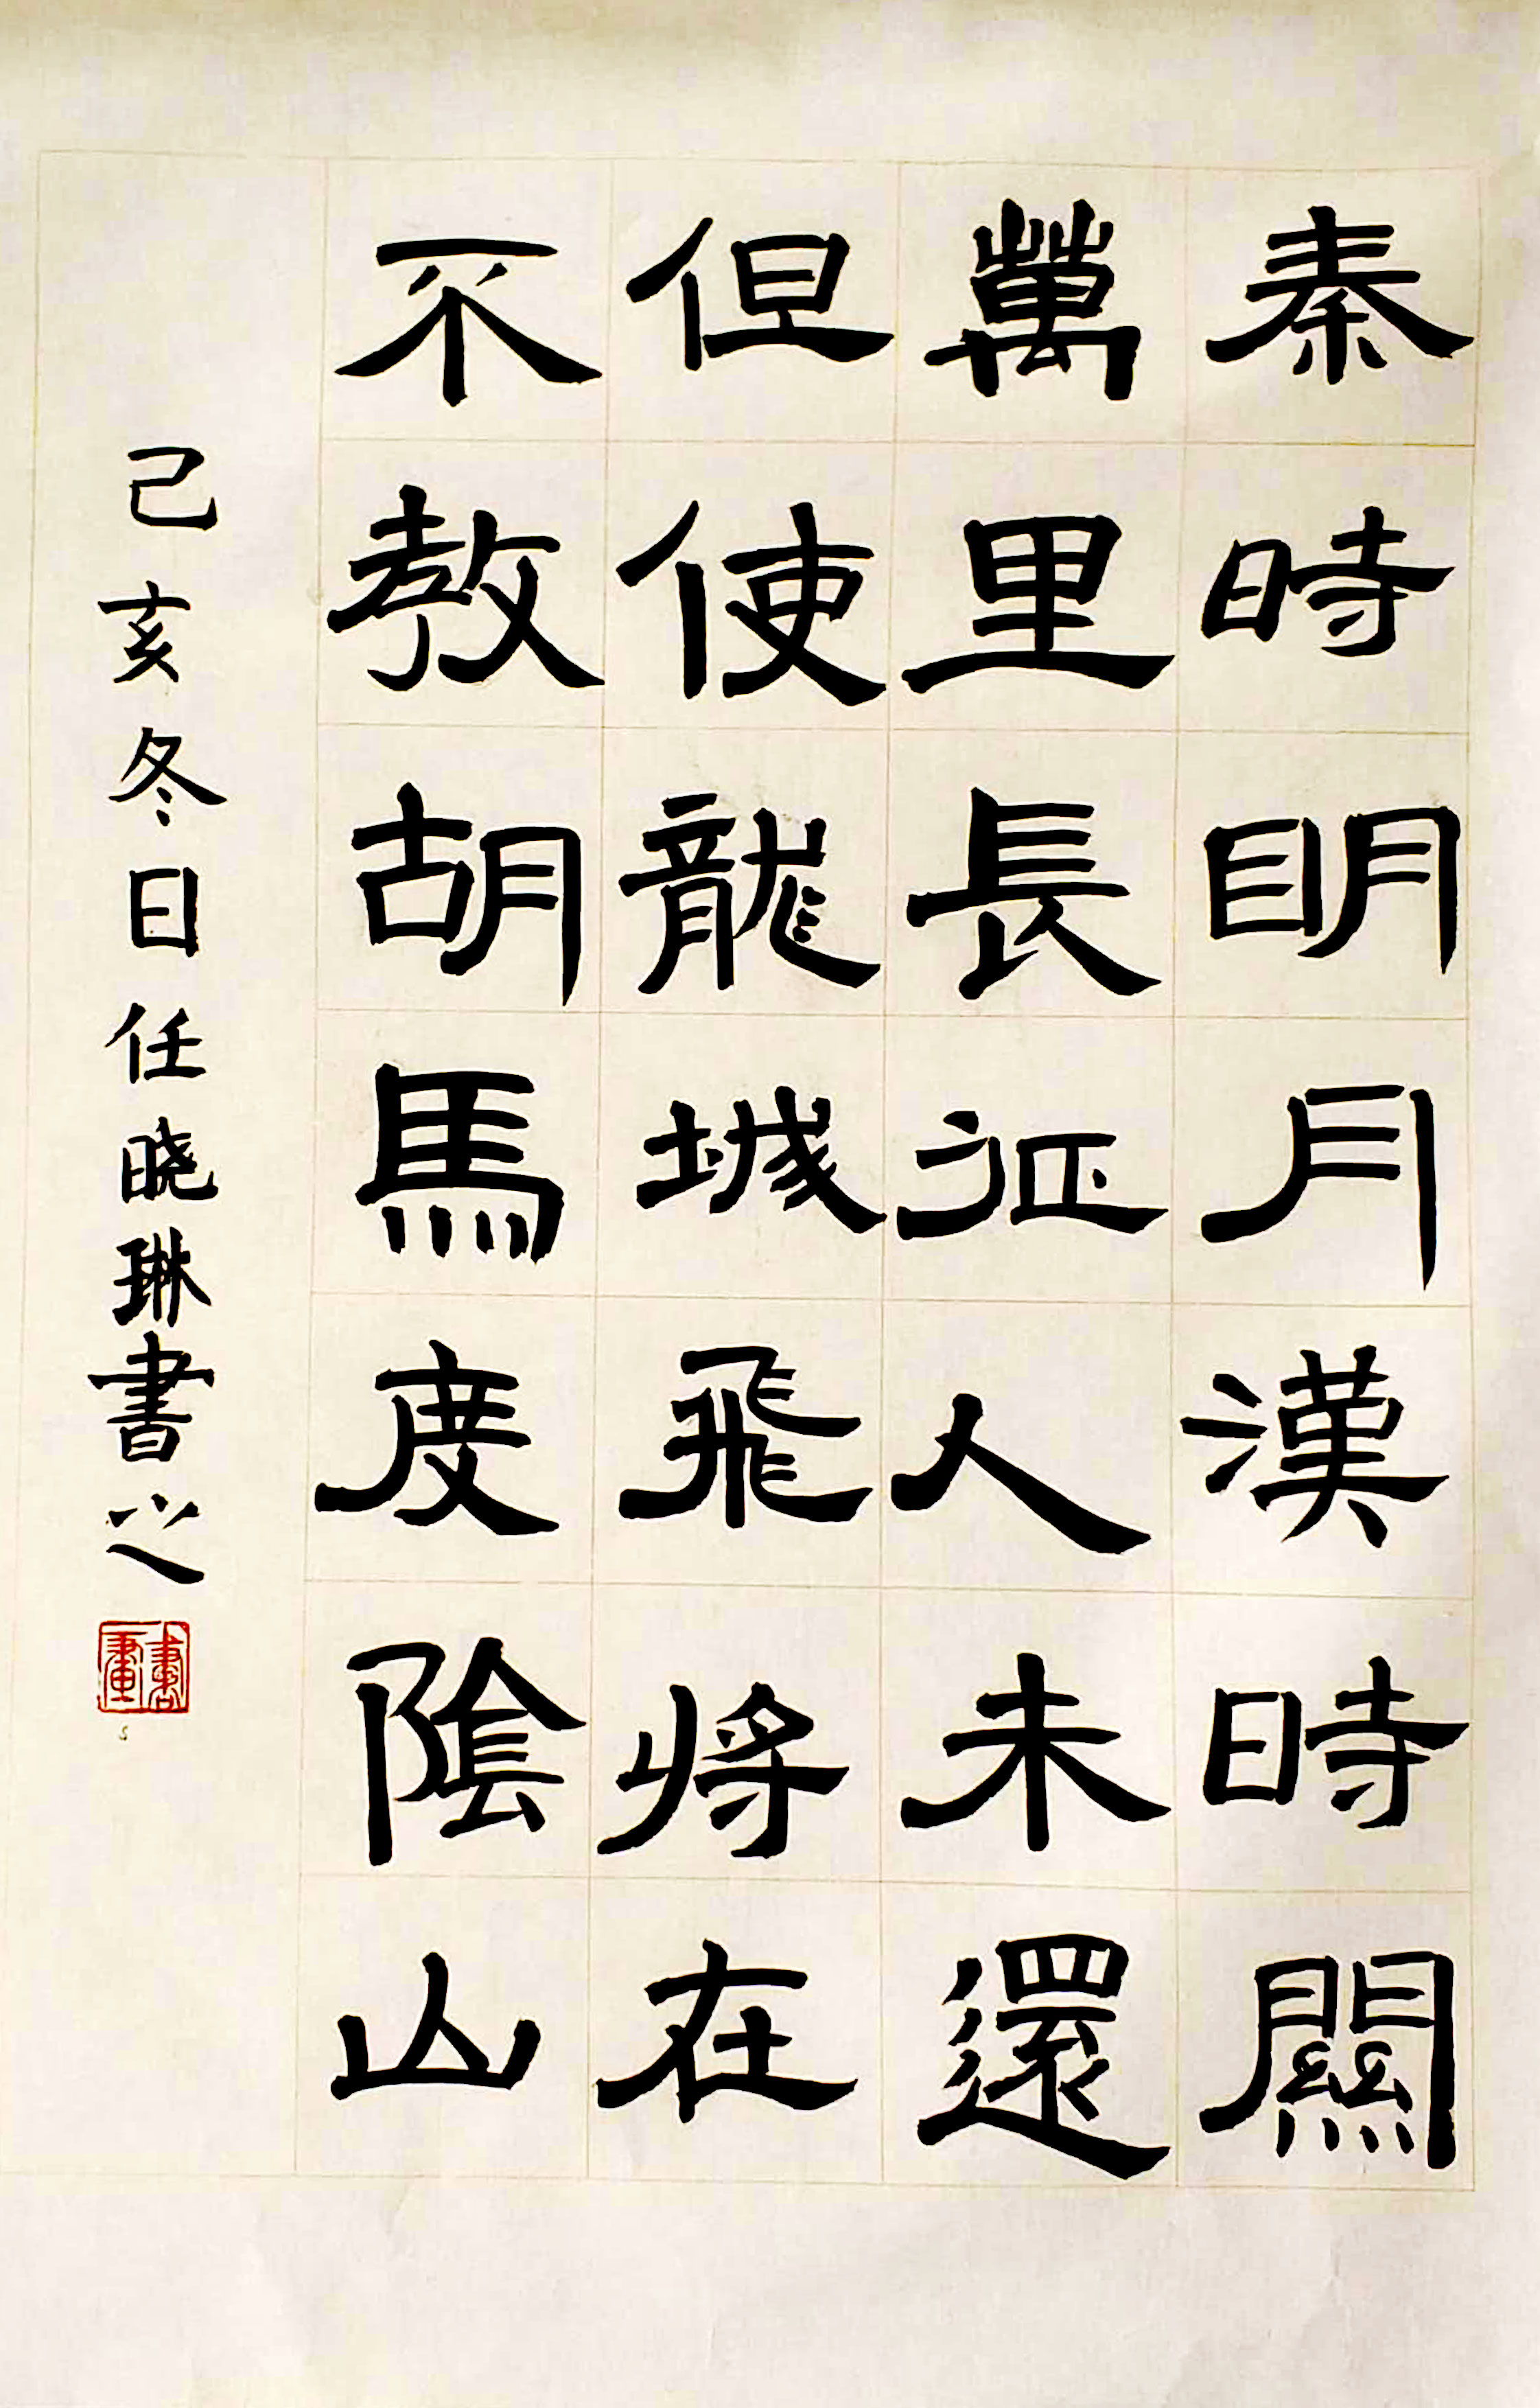 秦時明月漢時關
萬里長征人未還
但使龍城飛將在
不教胡馬度陰山
己亥冬日任晓琳書之
書畫